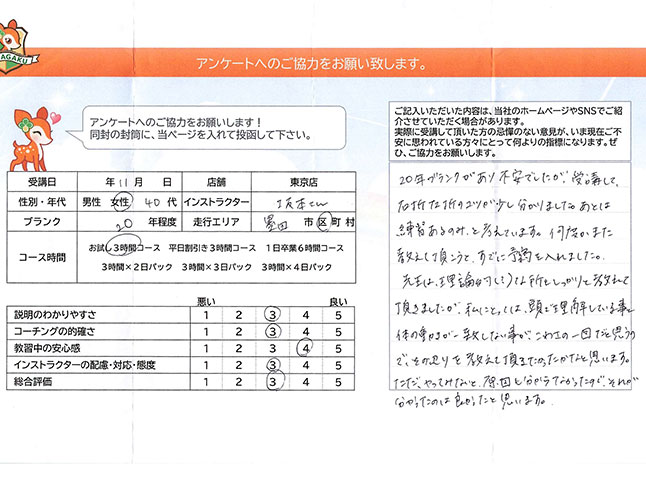 AGAKU
アンケートへのご協力をお願い致します。
アンケートへのご協力をお願いします！
同封の封筒に、当ページを入れて投函して下さい。
ご記入いただいた内容は、当社のホームページやSNSでご紹
介させていただく場合があります。
実際に受講して頂いた方の忌憚のない意見が、いま現在ご不
安に思われている方々にとって何よりの指標になります。ぜ
ひ、ご協力をお願いします。
受講日 年 11 月 日 店舗 東京店
性別・年代 男性 女性 40 代 インストラクター 坂本さん
ブランク 20 年程度 走行エリア 墨田 市 区 町 村
コース時間 お試し3時間コース 平日割引き3時間コース 1日卒業6時間コース
3時間×2日パック 3時間×3日パック 3時間×4日パック
悪い 良い
説明のわかりやすさ 1 2 3 4 5
コーチングの的確さ 1 2 3 4 5
教習中の安心感 1 2 3 4 5
インストラクターの配慮・対応・態度 1 2 3 4 5
総合評価 1 2 3 4 5
20年ブランクがあり不安でしたが、受講して、
右折左折のコツが少し分かりました。あとは
練習あるのみ、と考えています。何度かまた
教えて頂こうと、すでに予約を入れました。
先生は、理論的にしっかりと教えて
頂きましたが、私にとっては、頭で理解している事と
体の動きが一致しない事が、こわさの一因だと思うの
で、その辺りを教えて頂きたかったかなと思います。
ただ、やってみないと、原因も分からなかったので、それが
分かったのは良かったと思います。